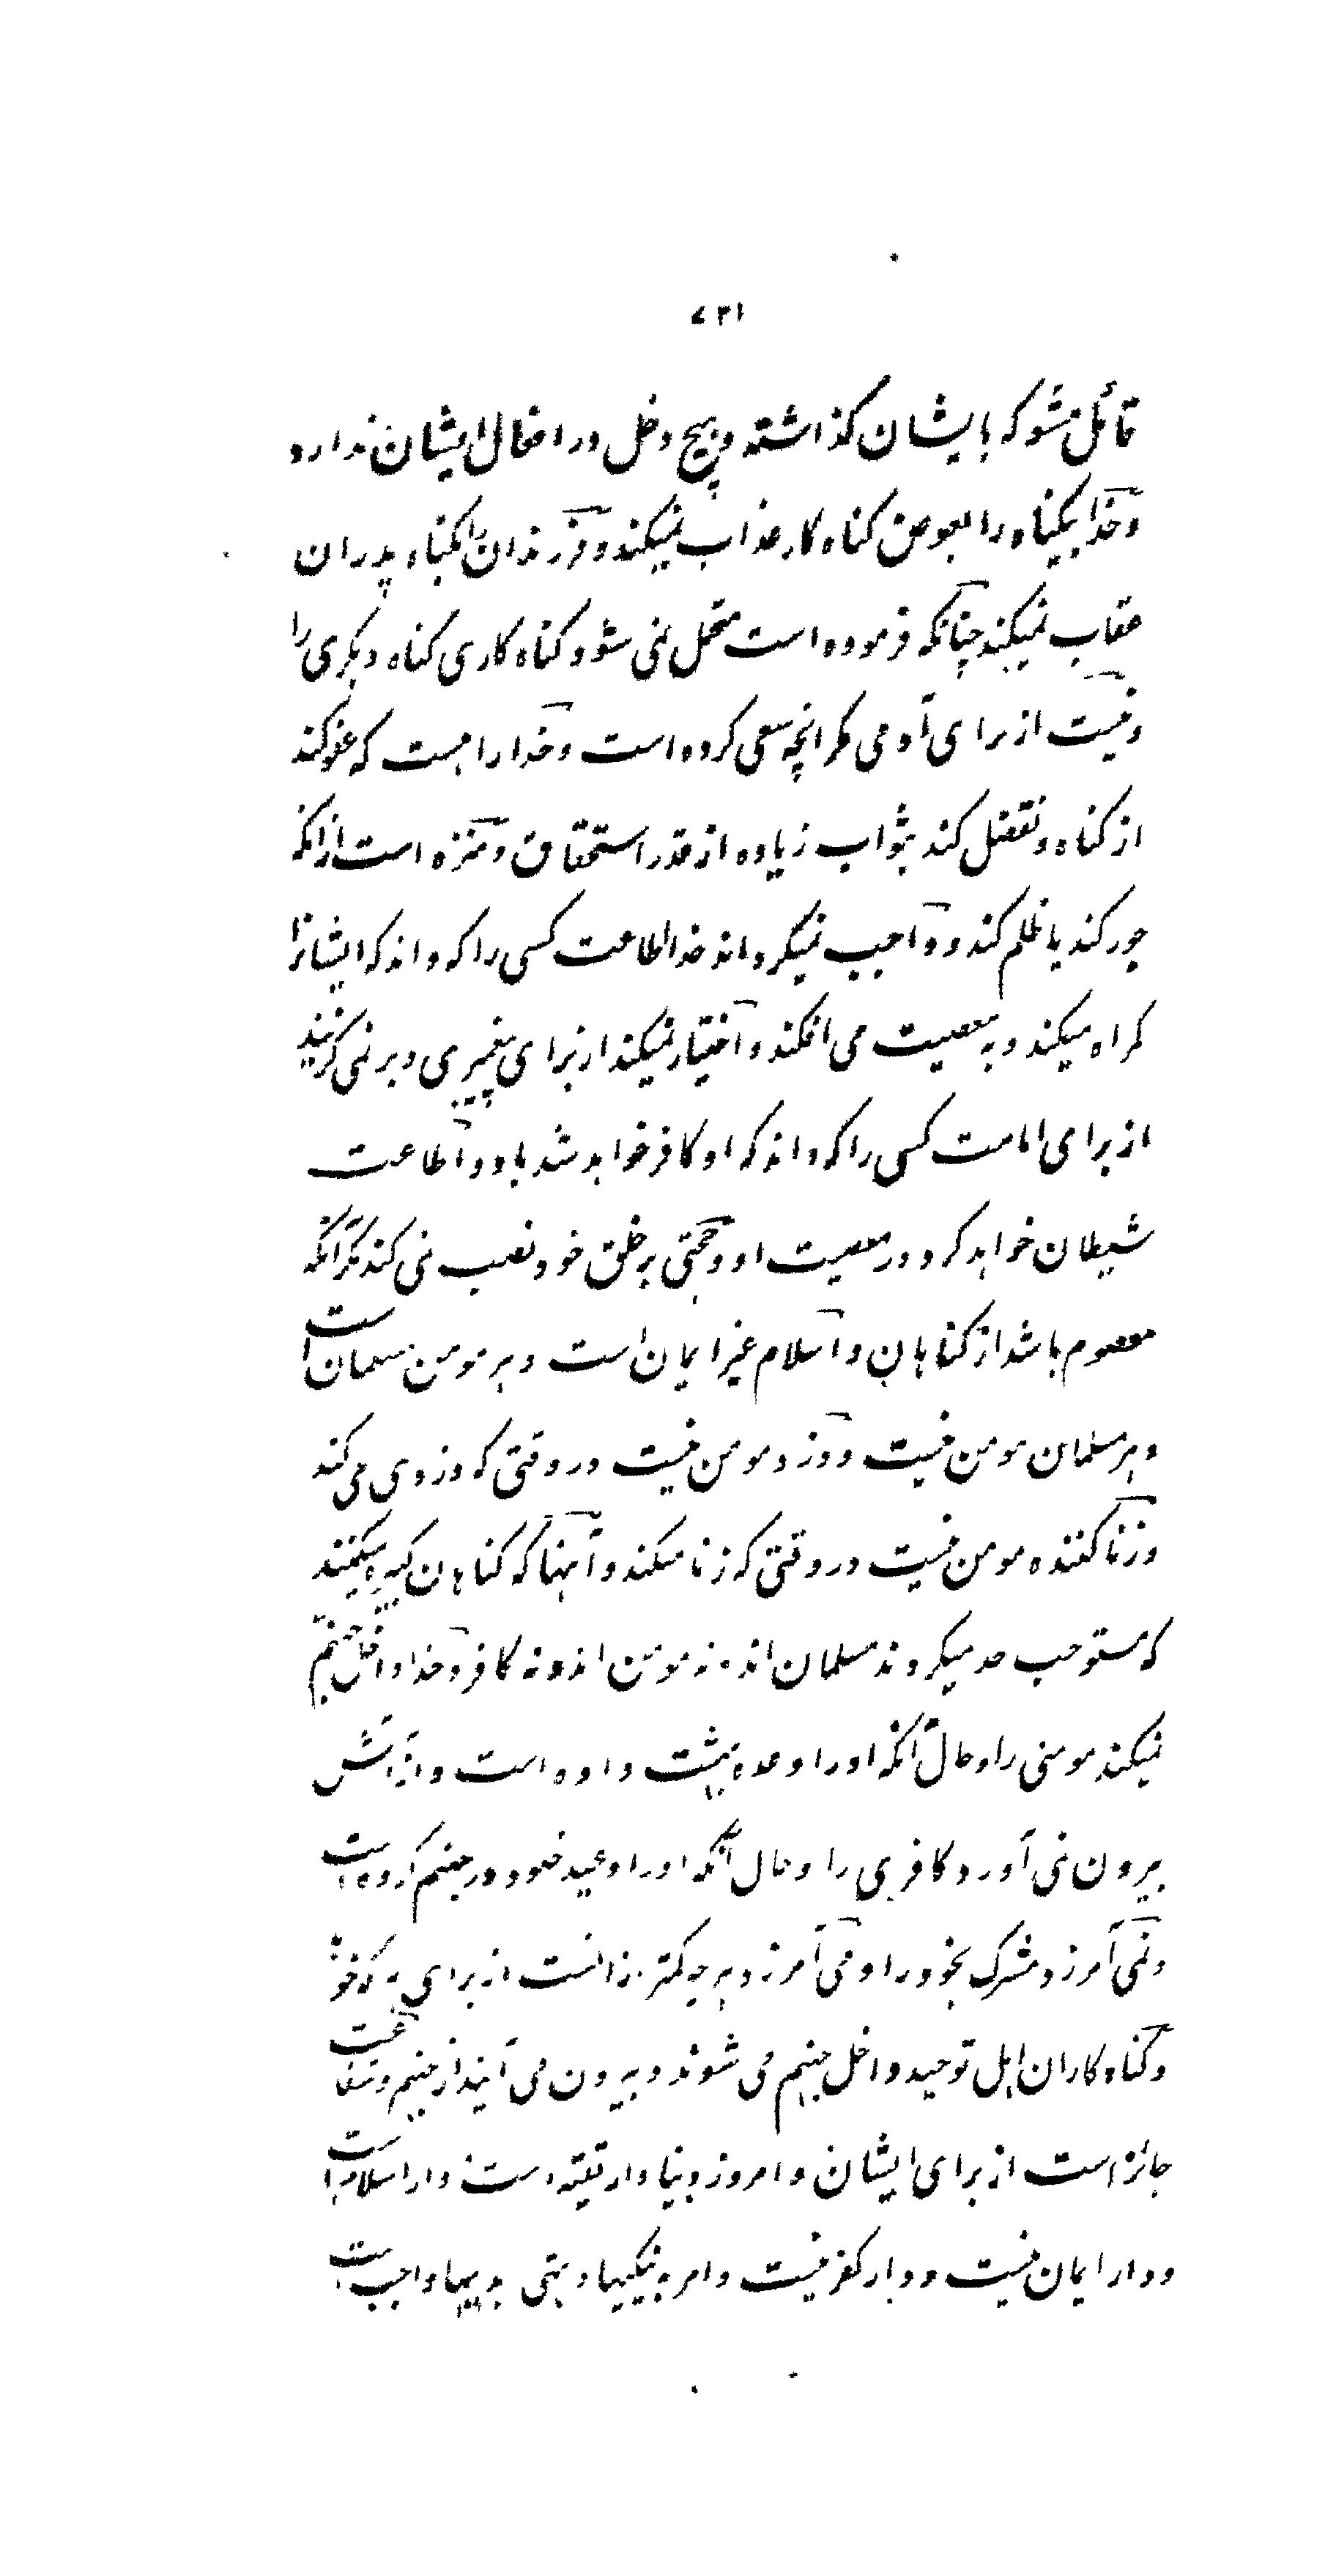 ۱۳۷
قائل مشو که بایشان گذاشته و هیچ دخل در افعال ایشان ندارد
و خدا بیگناه را بعوض گناه کار عذاب نمیکند و فرزندان را بگناه پدران
عقاب نمیکند چنانکه فرموده است متحمل نمی شود گناه کاری گناه دیگری را
و نیست از برای آدمی مگر انچه سعی کرده است و خدا را هست که عفو کند
از گناه و تفضل کند بثواب زیاده از قدر استحقاق و منزه است ازانکه
جور کند یا ظلم کند و واجب نمیگرداند خدا اطاعت کسی را که داند که ایشانرا
گمراه میکند و به معصیت می افکند و اختیار نمیکند از برای پیغمبری و بر نمی گزیند
از برای امامت کسی را که داند که او کافر خواهد شد باو و اطاعت
شیطان خواهد کرد در معصیت او و حجتی بر خلق خود نصب نمی کند مگر آنکه
معصوم باشد از گناهان و اسلام غیر ایمان است و هر مومن مسلمان است
و هر مسلمان مومن نیست و دزد مومن نیست در وقتی که دزدی می کند
و زنا کننده مومن نیست در وقتی که زنا میکند و آنها که گناهان کبیره میکنند
که مستوجب حد میگردند مسلمان اند نه مومن اند و نه کافر و خدا داخل جهنم
نمیکند مومنی را و حال آنکه او را وعده بهشت داده است و از آتش
بیرون نمی آورد کافری را و حال آنکه او را وعید خلود در جهنم کرده است
و نمی آمرزد مشرک بخود را و می آمرزد هر چه کمتر ازانست از برای هر که خواهد
و گناه کاران اهل توحید داخل جهنم می شوند و بیرون می آیند از جهنم و شفاعت
جائز است از برای ایشان و امروز دنیا دار تقیه است و دار اسلام است
و دار ایمان نیست و دار کفر نیست و امر به نیکیها و نهی بدیها واجب است